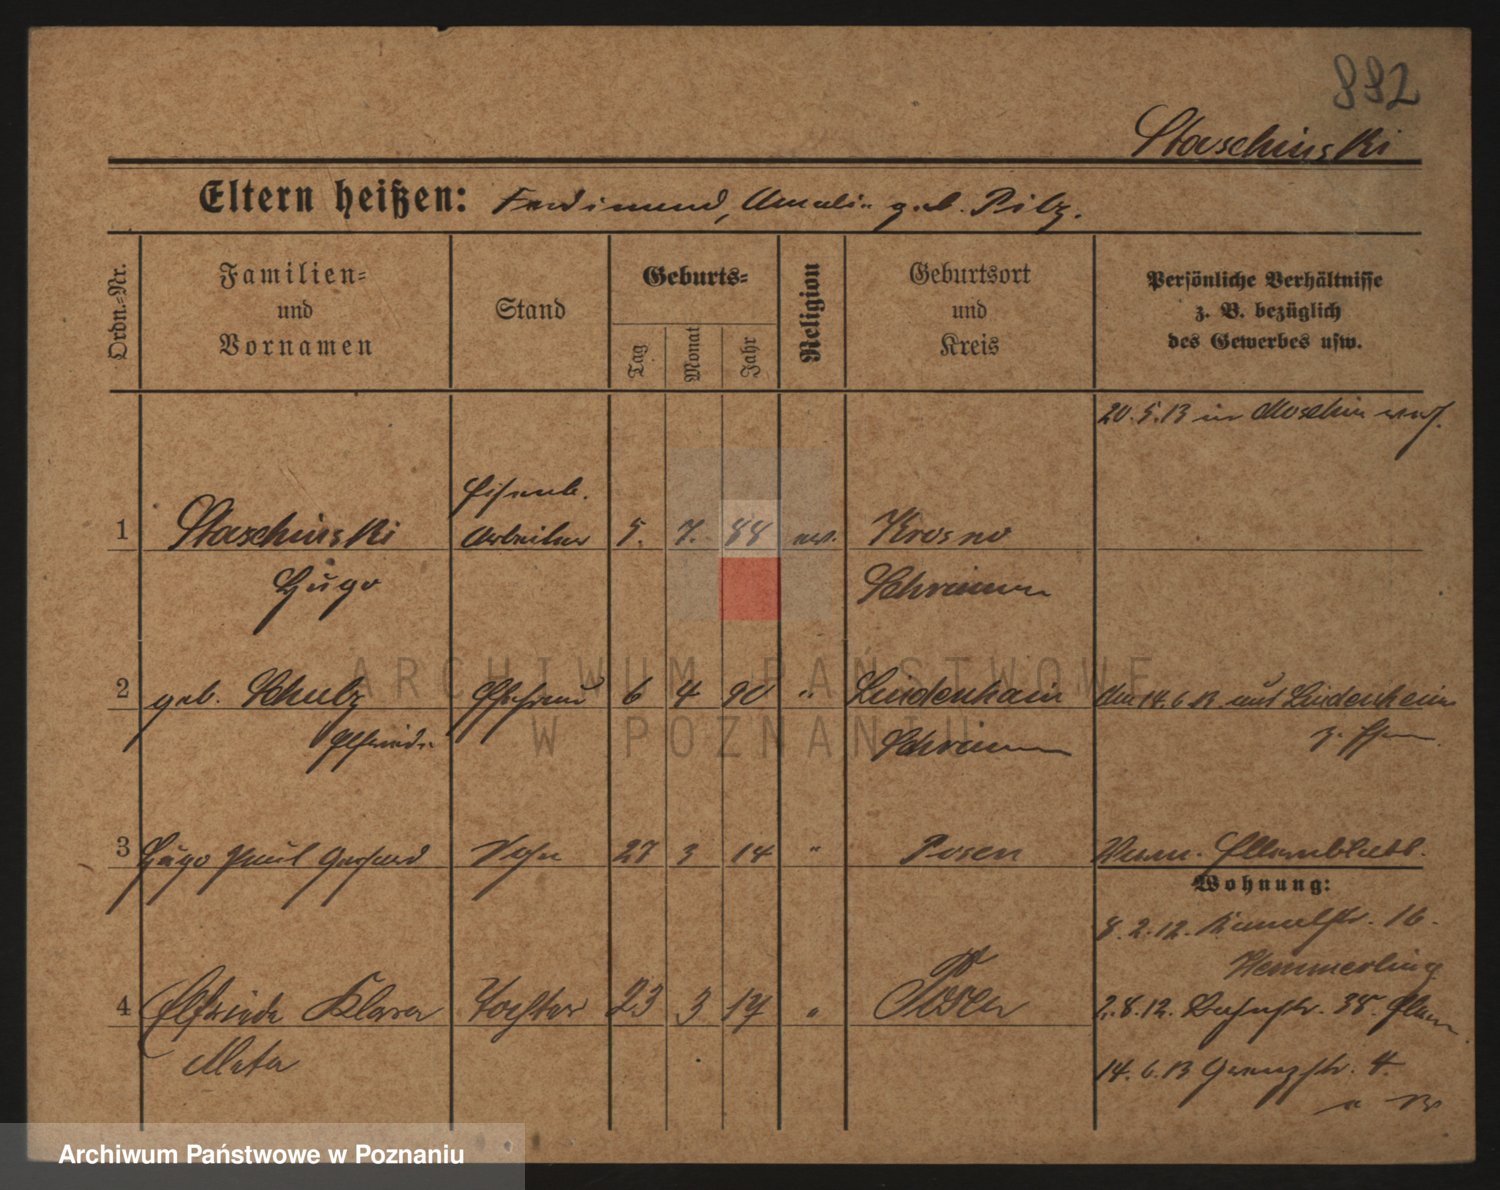 882
Staschinski
Eltern heißen: Ferdinand, Amalie geb. Pilz.
Ordn.=Nr.
Familien=
und
Vornamen
Stand
Geburts=
Tag
Monat
Jahr
Religion
Geburtsort
und
Kreis
Persönliche Verhältnisse
z. B. bezüglich
des Gewerbes usw.
20.5.13 in Moschin verh.
Eisenb.
1 Staschinski Arbeiter 5. 7. 88 ev. Krosno
Hugo Schrimm
2 geb. Schulz Ehefrau 6 4 90 " Lindenhain Am 14.6.13 aus Lindenhain
Elfriede Schrimm z. Ehem.
3 Hugo Paul Gerhard Sohn 27 3 14 " Posen
Wohnung:
8.2.12. Kanalstr. 16.
Hemmerling
4 Elfriede Klara Tochter 23 3 17 " Posen 2.8.12. Bahnstr. 38.
Meta
14.6.13 Grenzstr. 4.
ARCHIWUM PAŃSTWOWE
W POZNANIU
Archiwum Państwowe w Poznaniu